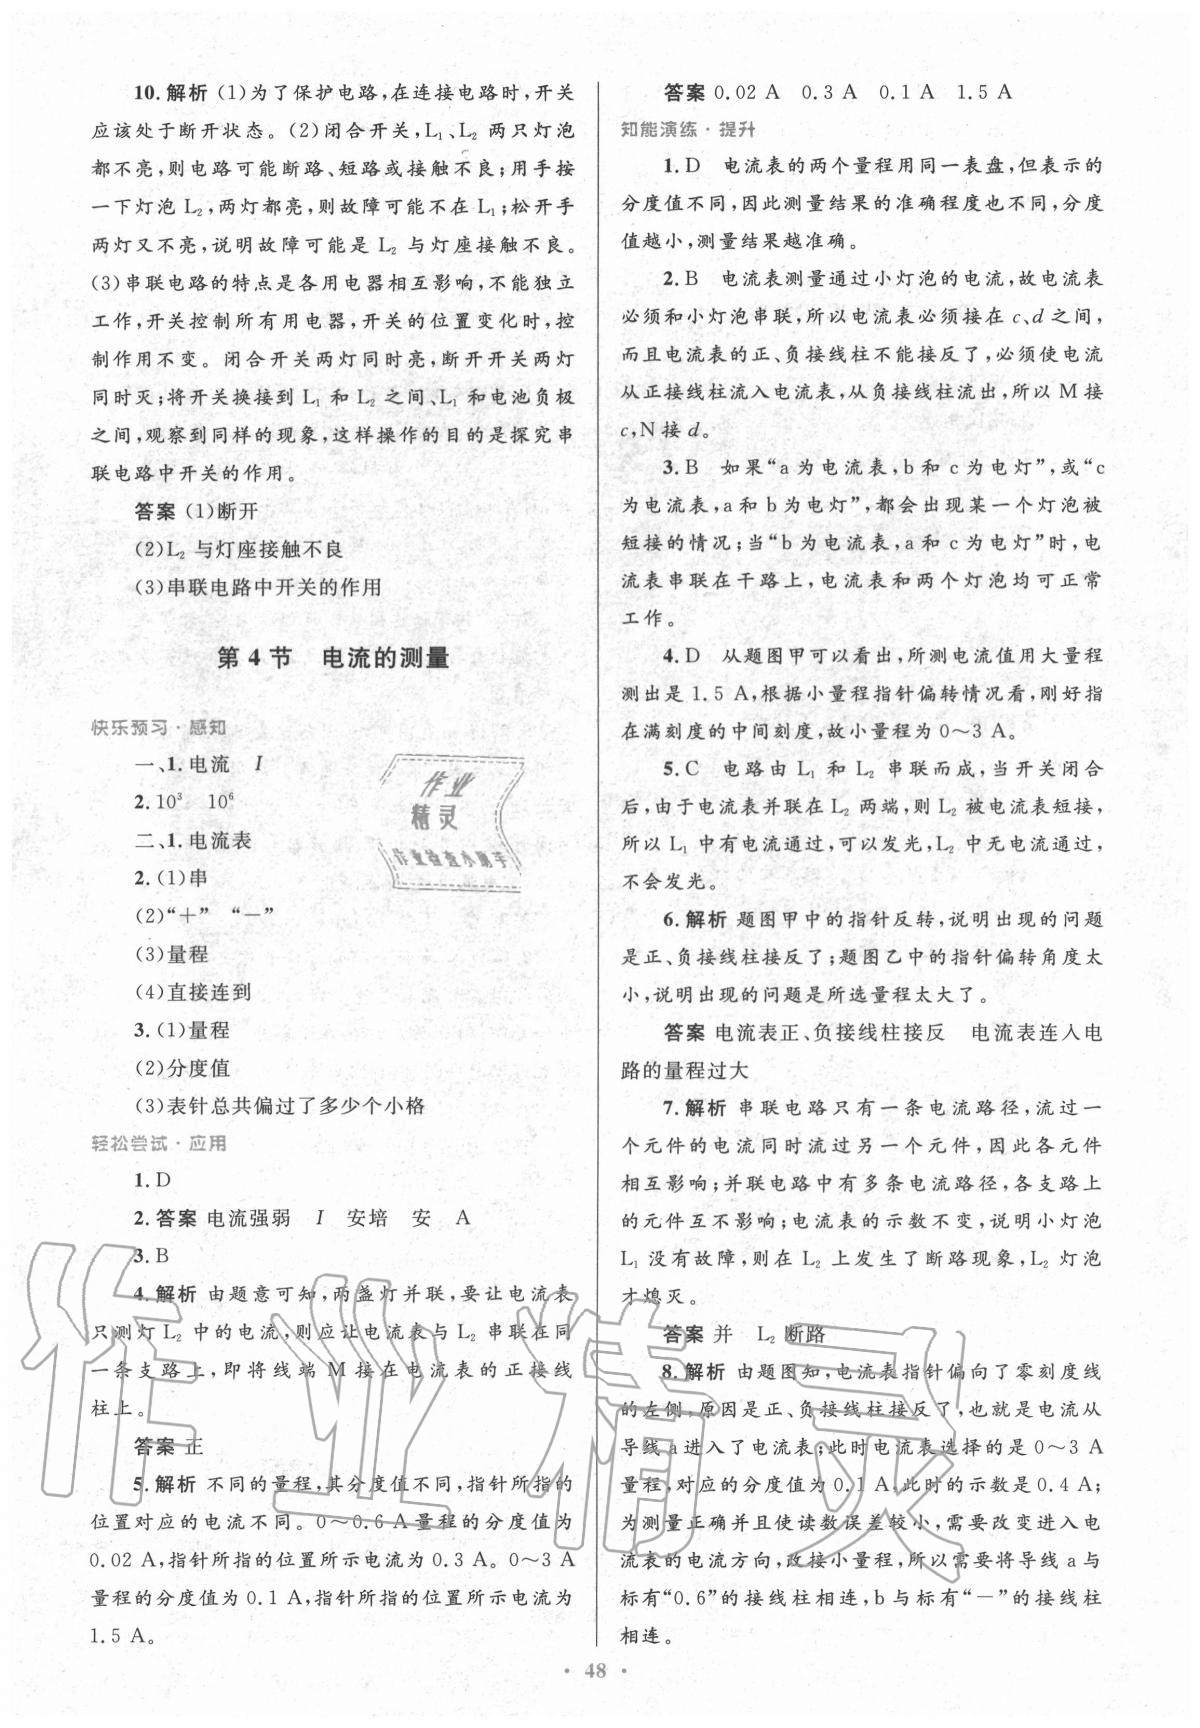 10. 解析 (1)为了保护电路,在连接电路时,开关
应该处于断开状态。(2)闭合开关,L₁、L₂ 两只灯泡
都不亮,则电路可能断路、短路或接触不良;用手按
一下灯泡 L₂,两灯都亮,则故障可能不在 L₁;松开手
两灯又不亮,说明故障可能是 L₂ 与灯座接触不良。
(3)串联电路的特点是各用电器相互影响,不能独立
工作,开关控制所有用电器,开关的位置变化时,控
制作用不变。闭合开关两灯同时亮,断开开关两灯
同时灭;将开关换接到 L₁ 和 L₂ 之间、L₁ 和电池负极
之间,观察到同样的现象,这样操作的目的是探究串
联电路中开关的作用。
答案 (1)断开
(2)L₂ 与灯座接触不良
(3)串联电路中开关的作用
第 4 节 电流的测量
快乐预习·感知
一、1. 电流 I
2. 10³ 10⁶
二、1. 电流表
2. (1)串
(2)“＋” “－”
(3)量程
(4)直接连到
3. (1)量程
(2)分度值
(3)表针总共偏过了多少个小格
轻松尝试·应用
1. D
2. 答案 电流强弱 I 安培 安 A
3. B
4. 解析 由题意可知,两盏灯并联,要让电流表
只测灯 L₂ 中的电流,则应让电流表与 L₂ 串联在同
一条支路上,即将线端 M 接在电流表的正接线
柱上。
答案 正
5. 解析 不同的量程,其分度值不同,指针所指的
位置对应的电流不同。0～0.6 A 量程的分度值为
0.02 A,指针所指的位置所示电流为 0.3 A。0～3 A
量程的分度值为 0.1 A,指针所指的位置所示电流为
1.5 A。
答案 0.02 A 0.3 A 0.1 A 1.5 A
知能演练·提升
1. D 电流表的两个量程用同一表盘,但表示的
分度值不同,因此测量结果的准确程度也不同,分度
值越小,测量结果越准确。
2. B 电流表测量通过小灯泡的电流,故电流表
必须和小灯泡串联,所以电流表必须接在 c、d 之间,
而且电流表的正、负接线柱不能接反了,必须使电流
从正接线柱流入电流表,从负接线柱流出,所以 M 接
c,N 接 d。
3. B 如果“a 为电流表,b 和 c 为电灯”,或“c
为电流表,a 和 b 为电灯”,都会出现某一个灯泡被
短接的情况;当“b 为电流表,a 和 c 为电灯”时,电
流表串联在干路上,电流表和两个灯泡均可正常
工作。
4. D 从题图甲可以看出,所测电流值用大量程
测出是 1.5 A,根据小量程指针偏转情况看,刚好指
在满刻度的中间刻度,故小量程为 0～3 A。
5. C 电路由 L₁ 和 L₂ 串联而成,当开关闭合
后,由于电流表并联在 L₂ 两端,则 L₂ 被电流表短接,
所以 L₁ 中有电流通过,可以发光,L₂ 中无电流通过,
不会发光。
6. 解析 题图甲中的指针反转,说明出现的问题
是正、负接线柱接反了;题图乙中的指针偏转角度太
小,说明出现的问题是所选量程太大了。
答案 电流表正、负接线柱接反 电流表连入电
路的量程过大
7. 解析 串联电路只有一条电流路径,流过一
个元件的电流同时流过另一个元件,因此各元件
相互影响;并联电路中有多条电流路径,各支路上
的元件互不影响;电流表的示数不变,说明小灯泡
L₁ 没有故障,则在 L₂ 上发生了断路现象,L₂ 灯泡
才熄灭。
答案 并 L₂ 断路
8. 解析 由题图知,电流表指针偏向了零刻度线
的左侧,原因是正、负接线柱接反了,也就是电流从
导线 a 进入了电流表;此时电流表选择的是 0～3 A
量程,对应的分度值为 0.1 A,此时的示数是 0.4 A;
为测量正确并且使读数误差较小,需要改变进入电
流表的电流方向,改接小量程,所以需要将导线 a 与
标有“0.6”的接线柱相连,b 与标有“－”的接线柱
相连。
· 48 ·
作业
精灵
作业检查小助手
作业精灵